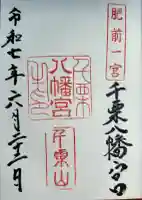 肥前一宮
千栗八幡宮
八幡宮
千栗山
令和七年六月二十二日